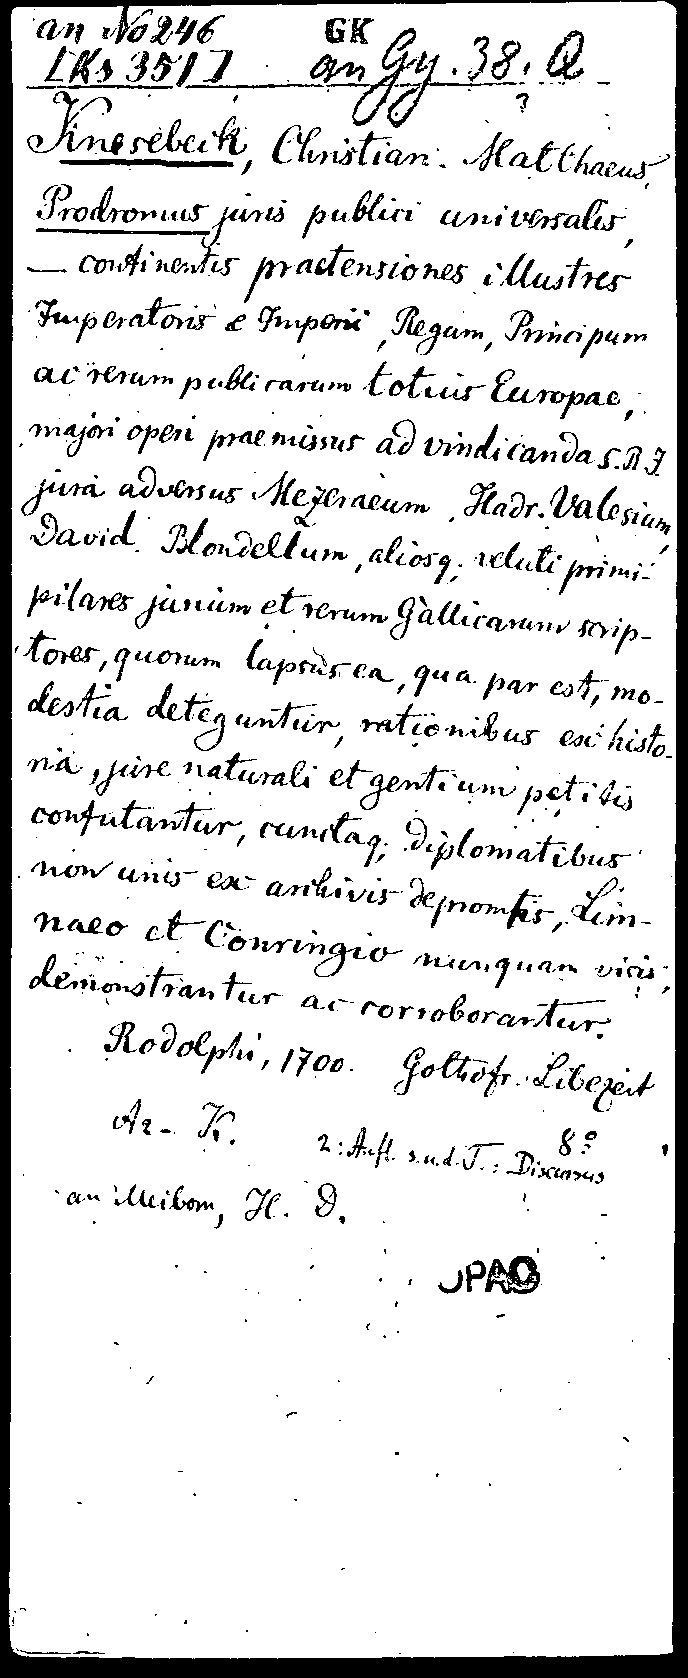 an No 246 GK
[Ks 351] an Gy. 38. Q
?
Knesebeck, Christian. Matthaeus.
Prodromus juris publici universalis,
— continentis praetensiones illustres
Imperatoris & Imperii, Regum, Principum
ac rerum publicarum totius Europae,
majori operi praemissus ad vindicanda S. R. I.
jura adversus Mezeraeum, Hadr. Valesium,
David. Blondellum, aliosq; veluti primi-
pilares jurium et rerum Gallicarum scrip-
tores, quorum lapsus ea, qua par est, mo-
destia deteguntur, rationibus ex histo-
ria, jure naturali et gentium petitis
confutantur, cunctaq; diplomatibus
non unis ex archivis depromtis, Lim-
naeo et Conringio nunquam visis,
demonstrantur ac corroborantur.
Rodolphi, 1700. Gothofr. Libezeit
A2 - K. 8°
2: Aufl. s.u.d.T.: Discursus
an Meibom, H. D.